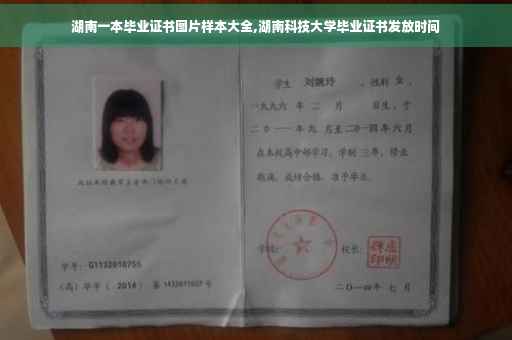 湖南一本毕业证书图片样本大全,湖南科技大学毕业证书发放时间
学生 刘婉玲 ，性别 女 ，
一九九六 年 二 月 日生，于
二〇一一 年 九 月至 二〇一四 年 六 月
在本校高中部学习，学制 三 年，修业
期满，成绩合格，准予毕业。
学号： G1132010755
（高）毕字（ 2014 ）第 1432011027 号
学校：
校长：
二〇一四年 七 月